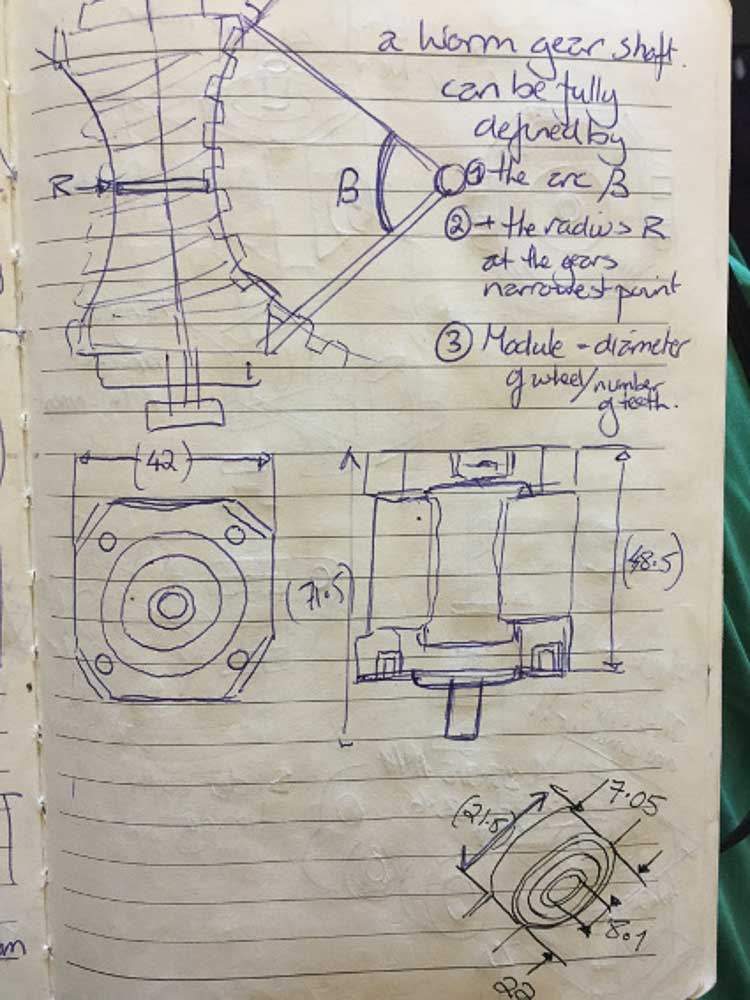 a worm gear shaft.
can be fully
defined by
① the arc β
② + the radius R
at the gears
narrowest point
③ Module - diameter
of wheel/number
of teeth.
R
β
(42)
(71.5)
(48.5)
(21.5)
7.05
8.1
22